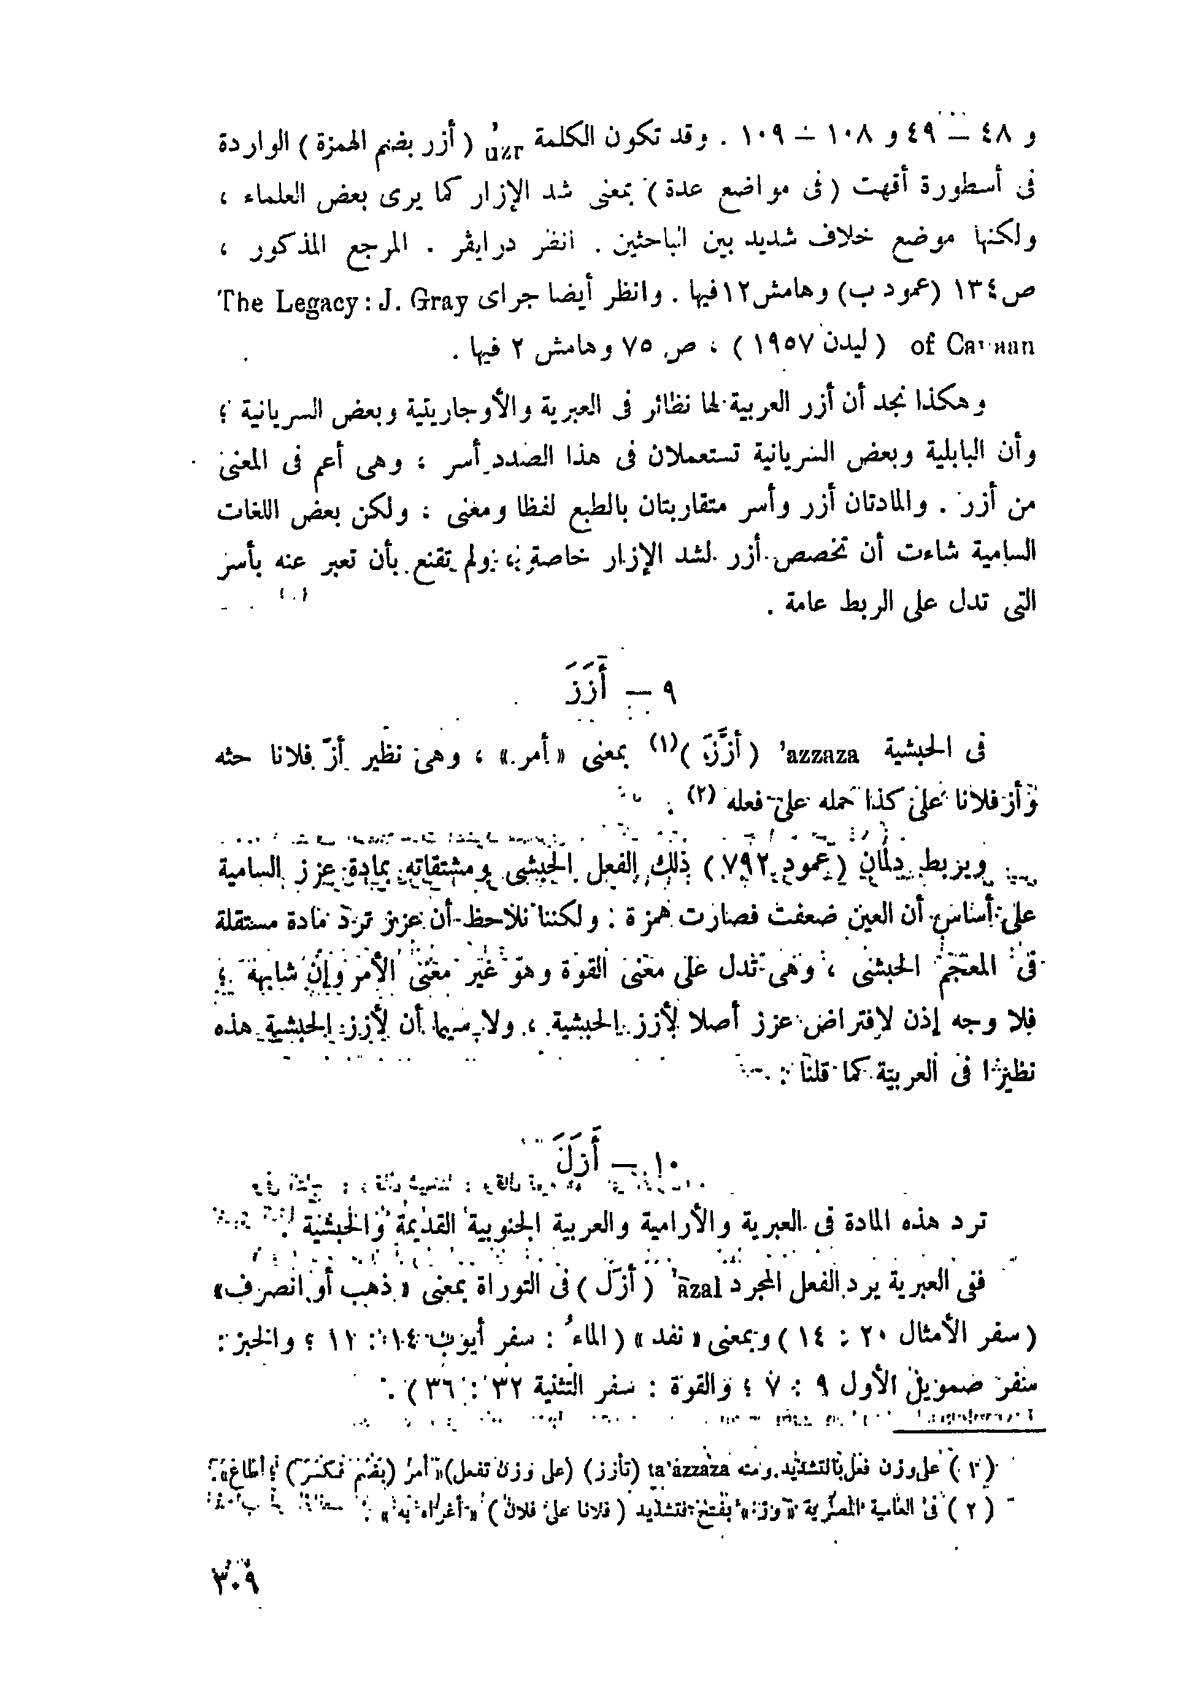 و ٤٨ – ٤٩ و ١٠٨ – ١٠٩ . وقد تكون الكلمة ʾuzr ( أزر بضم الهمزة ) الواردة
فى أسطورة أقهت ( فى مواضع عدة ) بمعنى شد الإزار كما يرى بعض العلماء ،
ولكنها موضع خلاف شديد بين الباحثين . انظر درايڤر . المرجع المذكور ،
ص ١٣٤ (عمود ب) وهامش ١٢ فيها . وانظر أيضا جراى The Legacy : J. Gray
of Canaan ( ليدن ١٩٥٧ ) ، ص ٧٥ وهامش ٢ فيها .
وهكذا نجد أن أزر العربية لها نظائر فى العبرية والأوجاريتية وبعض السريانية ؛
وأن البابلية وبعض السريانية تستعملان فى هذا الصدد أسر ، وهى أعم فى المعنى
من أزر . والمادتان أزر وأسر متقاربتان بالطبع لفظا ومعنى ، ولكن بعض اللغات
السامية شاءت أن تخصص أزر لشد الإزار خاصة ، ولم تقنع بأن تعبر عنه بأسر
التى تدل على الربط عامة .
٩ – أَزَزَ
فى الحبشية ʾazzaza ( أزَّزَ )(١) بمعنى « أمر » ، وهى نظير أزّ فلانا حثه
وأز فلانا على كذا حمله على فعله (٢) .
ويربط دلمان (عمود ٧٩٢ ) ذلك الفعل الحبشى ومشتقاته بمادة عزز السامية
على أساس أن العين ضعفت فصارت همزة : ولكننا نلاحظ أن عزيز ترد مادة مستقلة
فى المعجم الحبشى ، وهى تدل على معنى القوة وهو غير معنى الأمر وإن شابهه ؛
فلا وجه إذن لافتراض عزز أصلا لأزز الحبشية ، ولا سيما أن لأزز الحبشية هذه
نظيرا فى العربية كما قلنا .
١٠ – أَزَلَ
ترد هذه المادة فى العبرية والأرامية والعربية الجنوبية القديمة والحبشية .
ففى العبرية يرد الفعل المجرد ʾāzal ( أزَل ) فى التوراة بمعنى « ذهب أو انصرف »
( سفر الأمثال ٢٠ : ١٤ ) وبمعنى « نفد » ( الماء : سفر أيوب ١٤ : ١١ ؛ والخبز :
سفر صمويل الأول ٩ : ٧ ؛ والقوة : سفر التثنية ٣٢ : ٣٦ ) .
( ١ ) على وزن فعل بالتشديد ومنه taʾazzaza (تأزز) (على وزن تفعل) « أمر (بضم فكسر) ؛ أطاع » .
( ٢ ) فى العامية المصرية « وز » بفتح فتشديد ( فلانا على فلان ) « أغراه به » .
٣٠٩